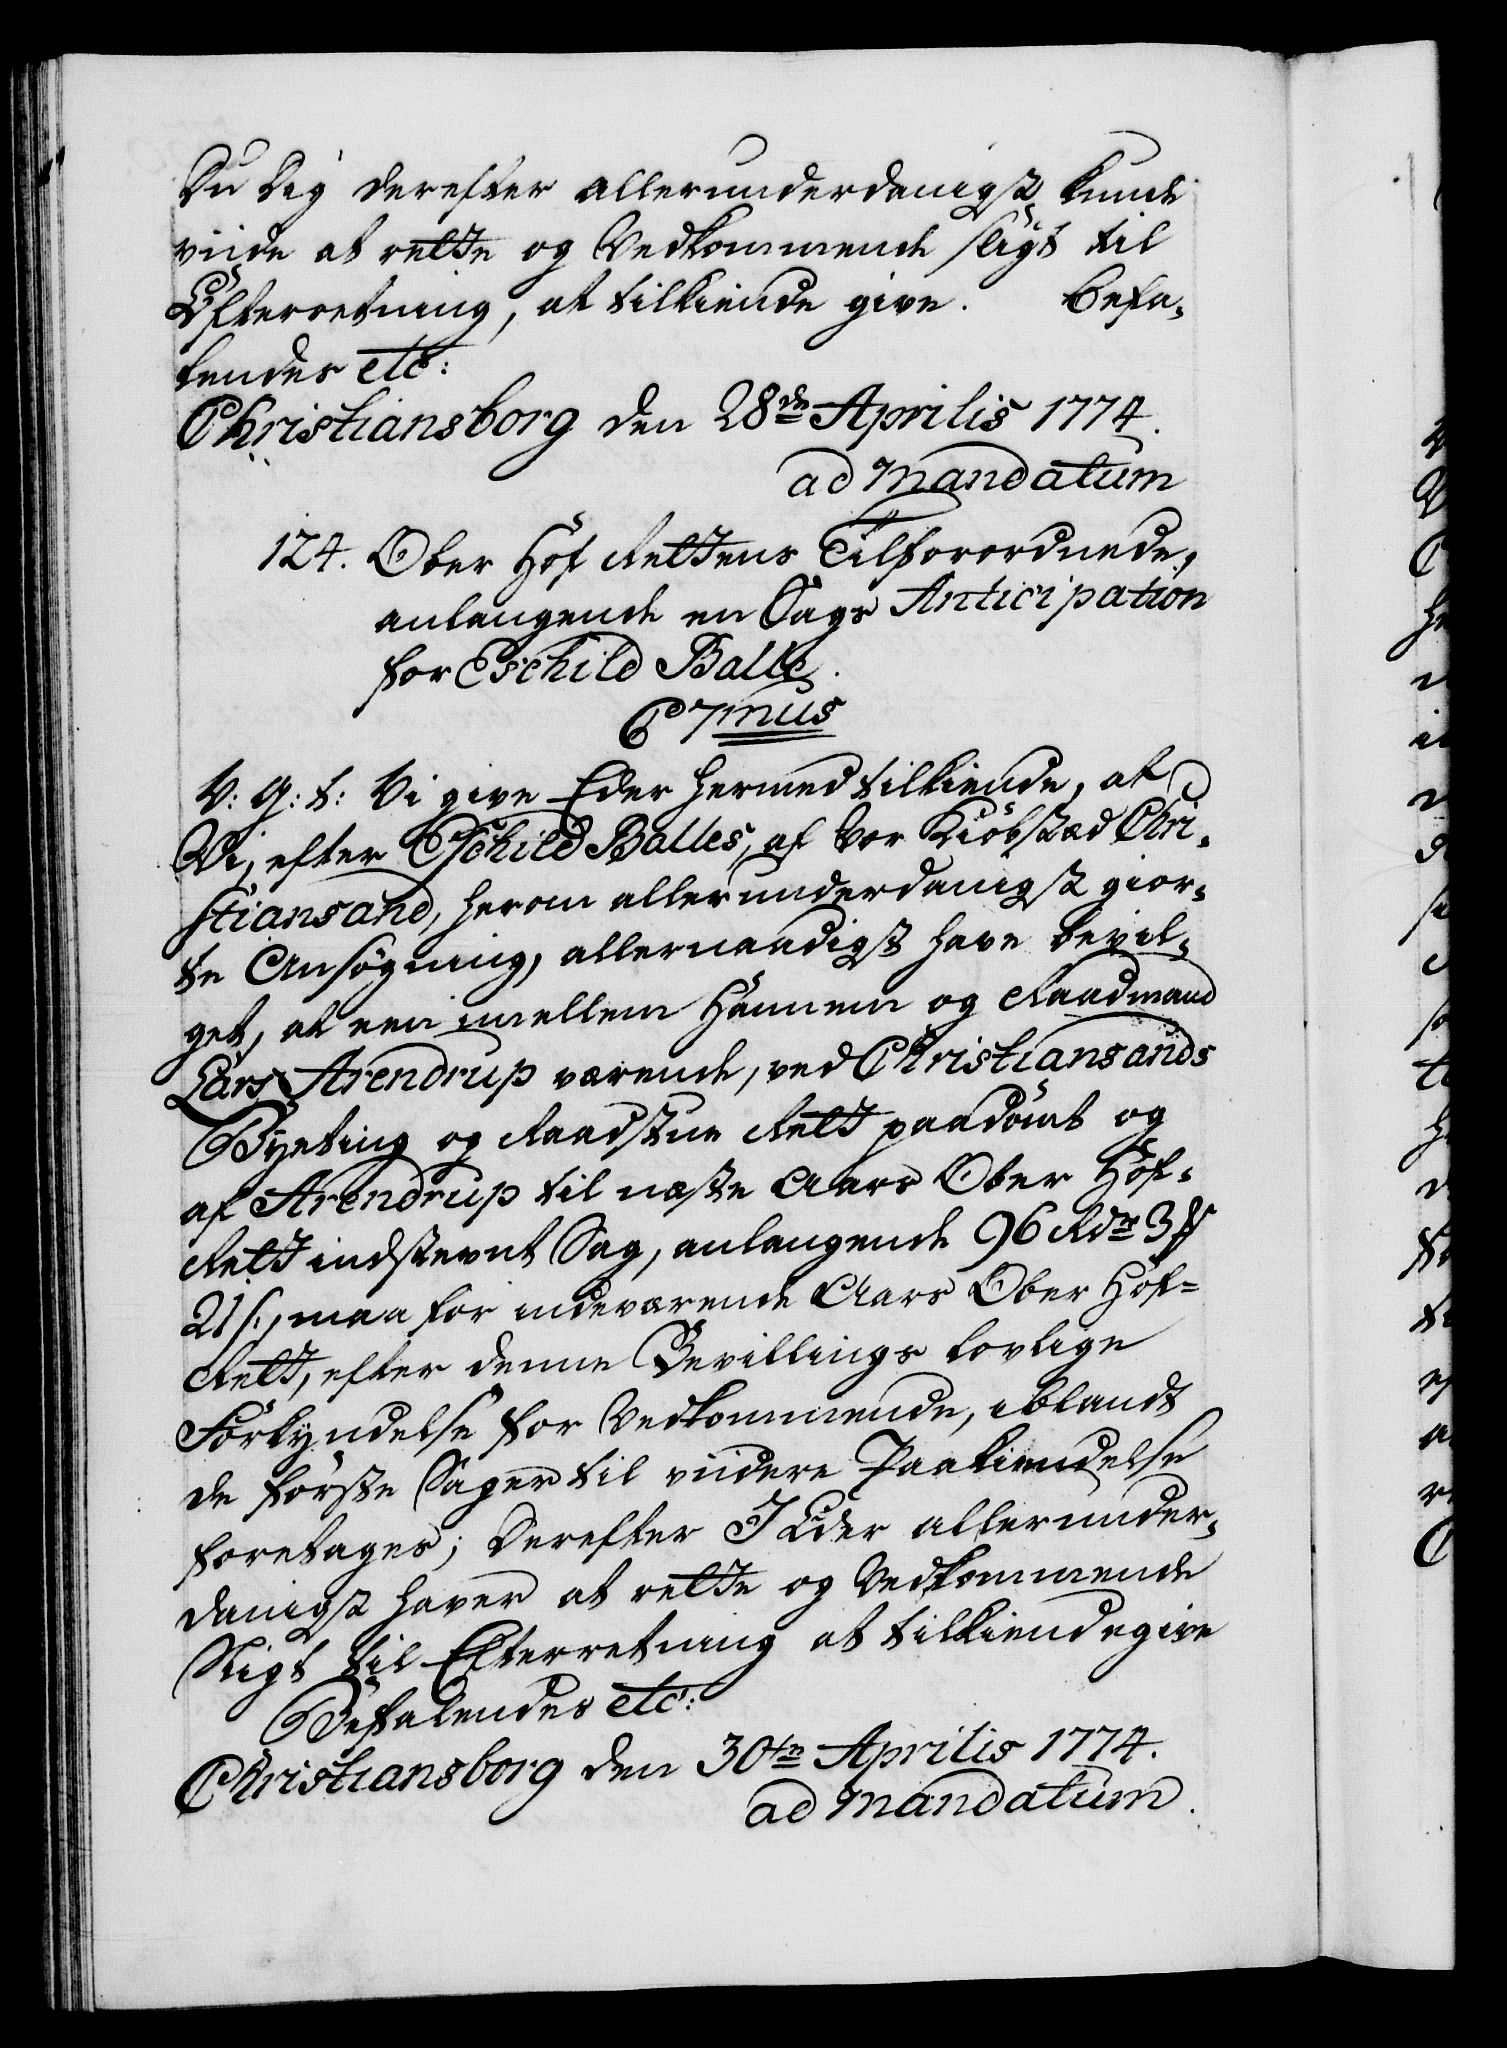 Du Dig derefter allerunderdanigst kunde
viide at rette og Vedkommende sligt til
Efterretning, at tilkiende give. Befa-
lendes etc:
Christiansborg den 28de Aprilis 1774.
ad Mandatum
124. Ober Hof Rettens Tilforordnede,
anlangende en Sags Anticipation
for Eschild Balle.
C7mus
V: G: t: Vi give Eder hermed tilkiende, at
Vi, efter Eschild Balles, af Vor Kiøbstæd Chri-
stiansand, herom allerunderdanigst gior-
te Ansøgning, allernaadigst have bevil-
get, at een imellem Hannem og Raadmand
Lars Arendrup værende, ved Christiansands
Byeting og Raadstue Rett paadømt og
af Arendrup til næste Aars Ober Hof-
Rett indstevnt Sag, anlangende 96 Rdr 3 ß
21 s:, maa for indeværende Aars Ober Hof-
Rett, efter denne Bevillings lovlige
Forkyndelse for Vedkommende, iblandt
de første Sager til viidere Paakiendelse
foretages; Derefter I Eder allerunder-
danigst haver at rette og Vedkommende
Sligt til Efterretning at tilkiendegive
Befalendes etc:
Christiansborg den 30te Aprilis 1774.
ad Mandatum.